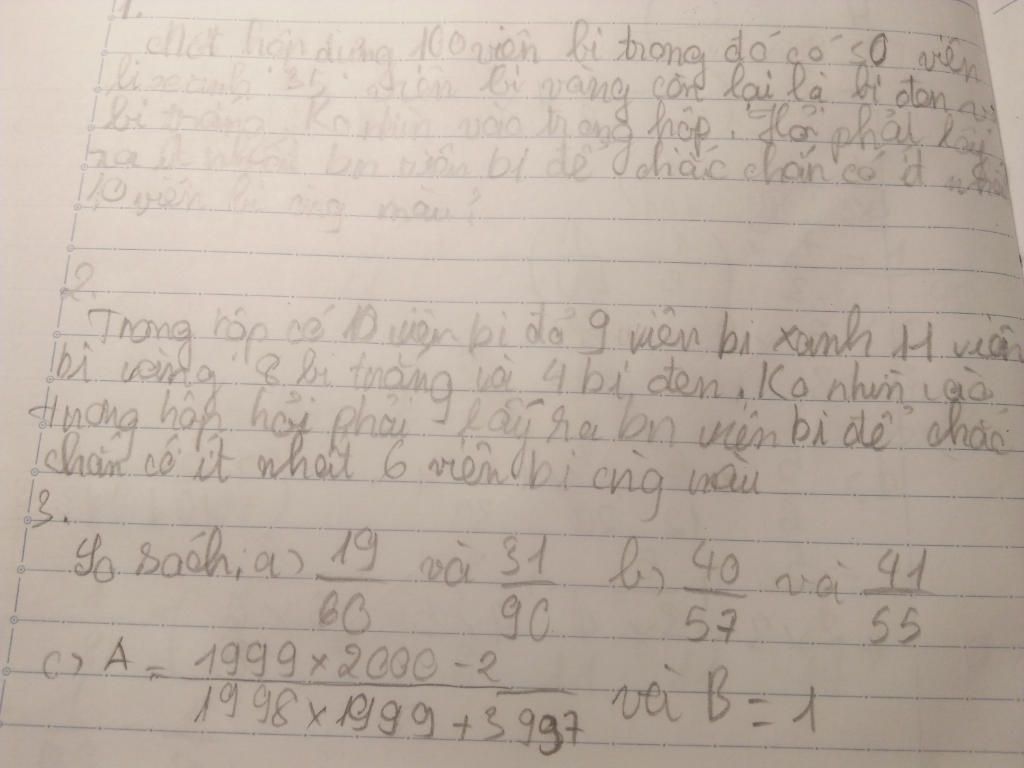 1.
Một hộp đựng 100 viên bi trong đó có 30 viên
bi xanh 35 viên bi vàng còn lại là bi đen và
bi trắng. Ko nhìn vào trong hộp. Hỏi phải lấy
ra ít nhất bn viên bi để chắc chắn có ít nhất
10 viên bi cùng màu?
2.
Trong hộp có 10 viên bi đỏ 9 viên bi xanh 11 viên
bi vàng 8 bi trắng và 4 bi đen. Ko nhìn vào
trong hộp hỏi phải lấy ra bn viên bi để chắc
chắn có ít nhất 6 viên bi cùng màu
3.
So sách; a) 19/60 và 31/90 b) 40/57 và 41/55
c) A = 1999 × 2000 - 2 / 1998 × 1999 + 3997 và B = 1